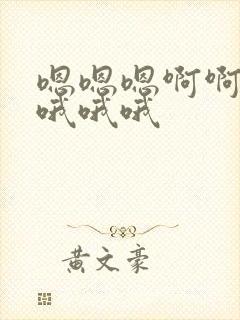 嗯嗯嗯啊啊
哦哦哦
黄文豪